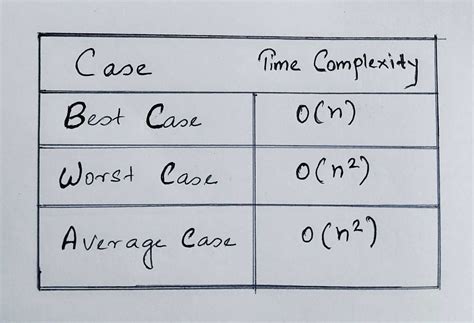 Case Time Complexity
Best Case O(n)
Worst Case O(n²)
Average Case O(n²)